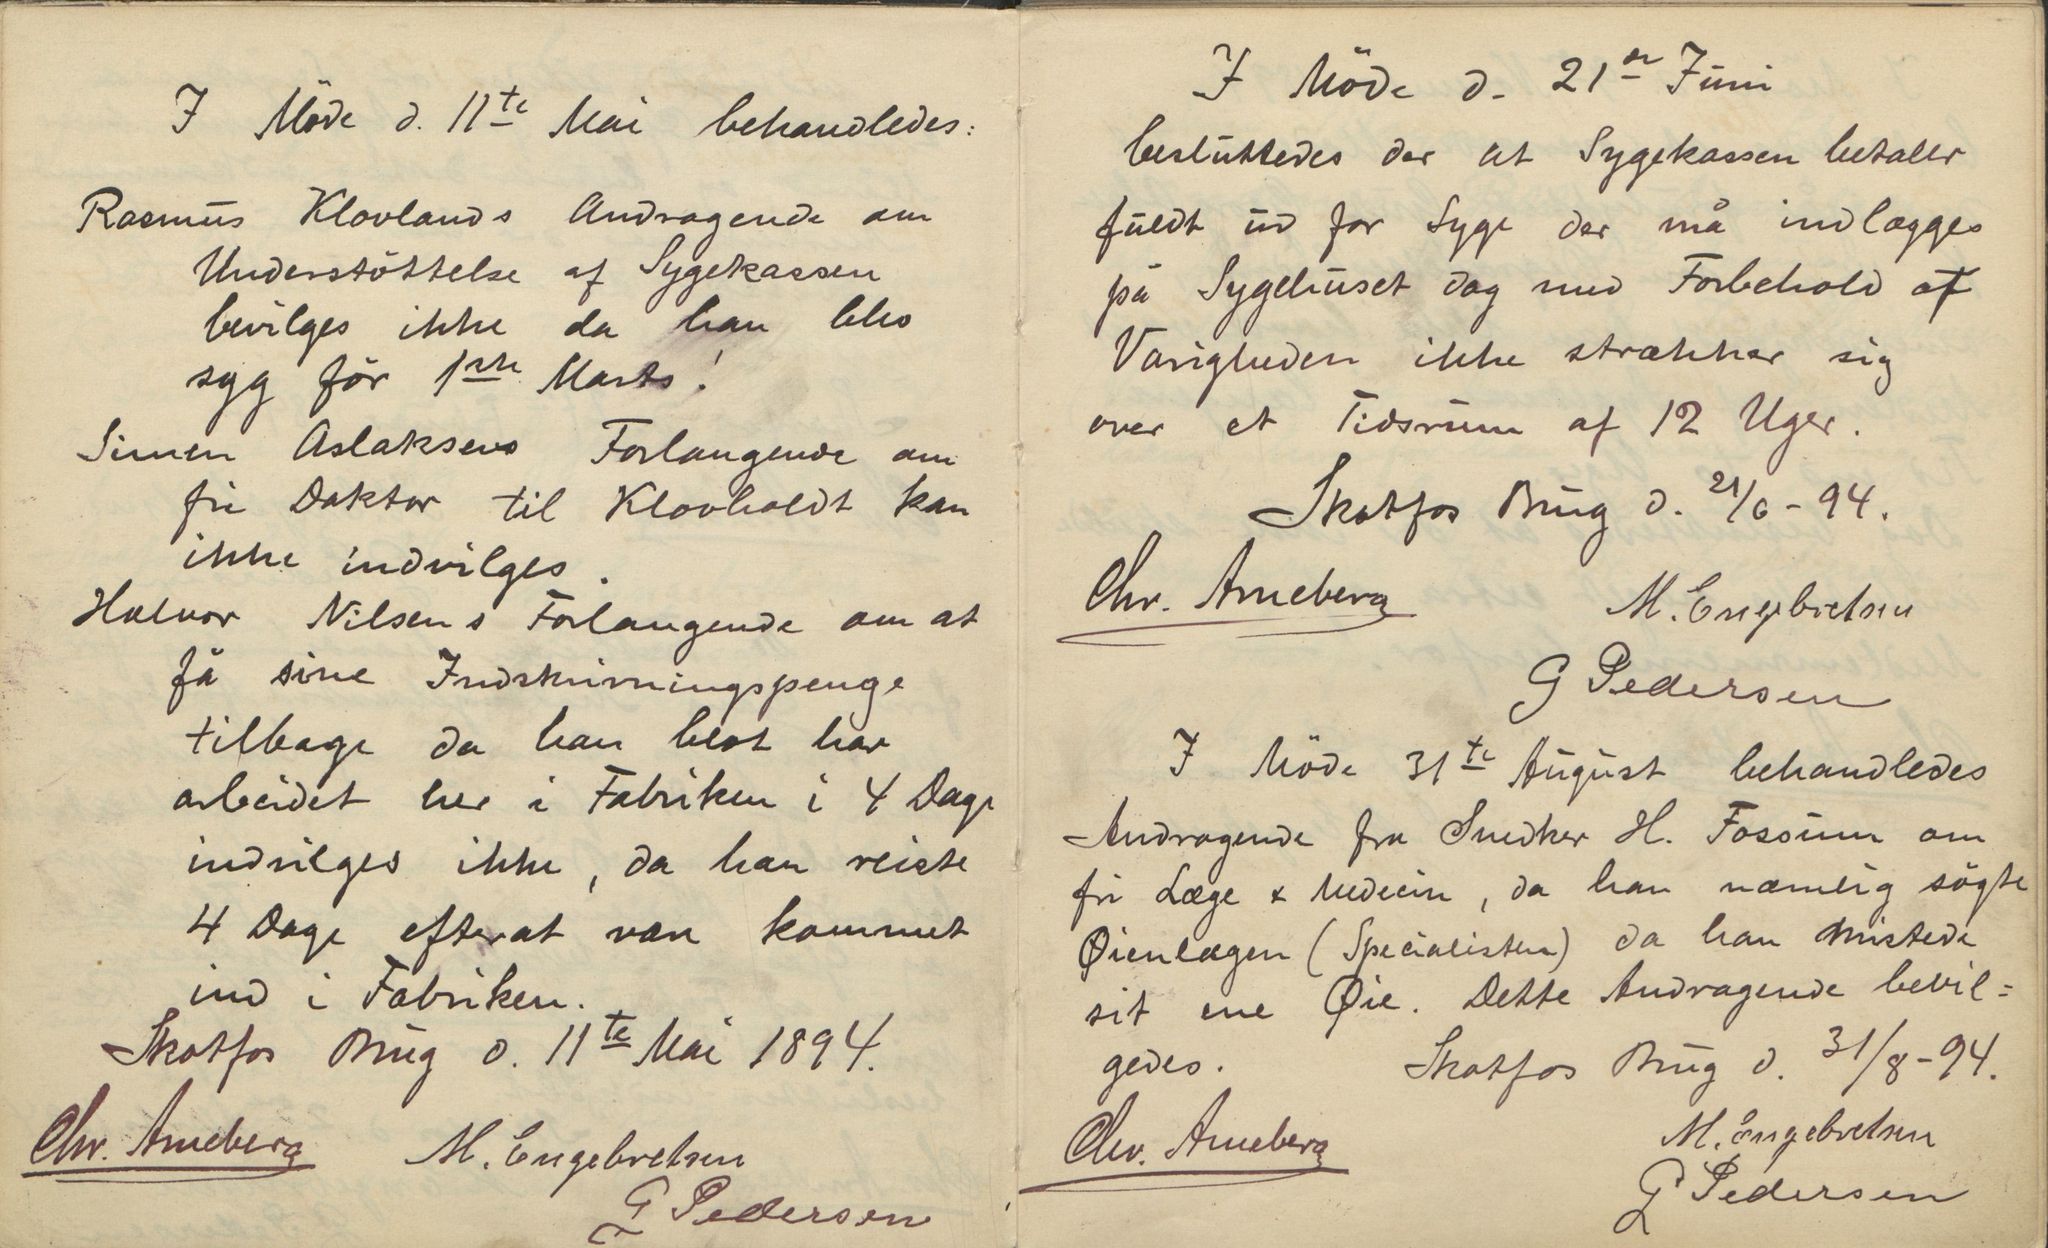 I Möde d. 11te Mai behandledes:
Rasmus Klovlands Andragende om
Understöttelse af Sygekassen
bevilges ikke da han blev
syg för 1ste Marts!
Simen Aslaksens Forlangende om
fri Doktor til Klovholdt kan
ikke indvilges.
Halvor Nilsens Forlangende om at
få sine Indskrivningspenge
tilbage da han blot har
arbeidet her i Fabriken i 4 Dage
indvilges ikke, da han reiste
4 Dage efterat være kommet
ind i Fabriken.
Skotfos Brug d. 11te Mai 1894.
Chr. Arneberg
M. Engebretsen
G Pedersen
I Möde d. 21de Juni
besluttedes der at Sygekassen betaler
fuldt ud for Syge der må indlægges
på Sygehuset dog med Forbehold at
Varigheden ikke strækker sig
over et Tidsrum af 12 Uger.
Skotfos Brug d. 21/6-94.
Chr. Arneberg
M. Engebretsen
G Pedersen
I Möde 31te August behandledes
Andragende fra Snedker H. Fossum om
fri Læge & Medecin, da han nemlig sögte
Øienlægen (Specialisten) da han mistede
sit ene Øie. Dette Andragende bevil=
gedes. Skotfos Brug d. 31/8-94.
Chr. Arneberg
M. Engebretsen
G Pedersen